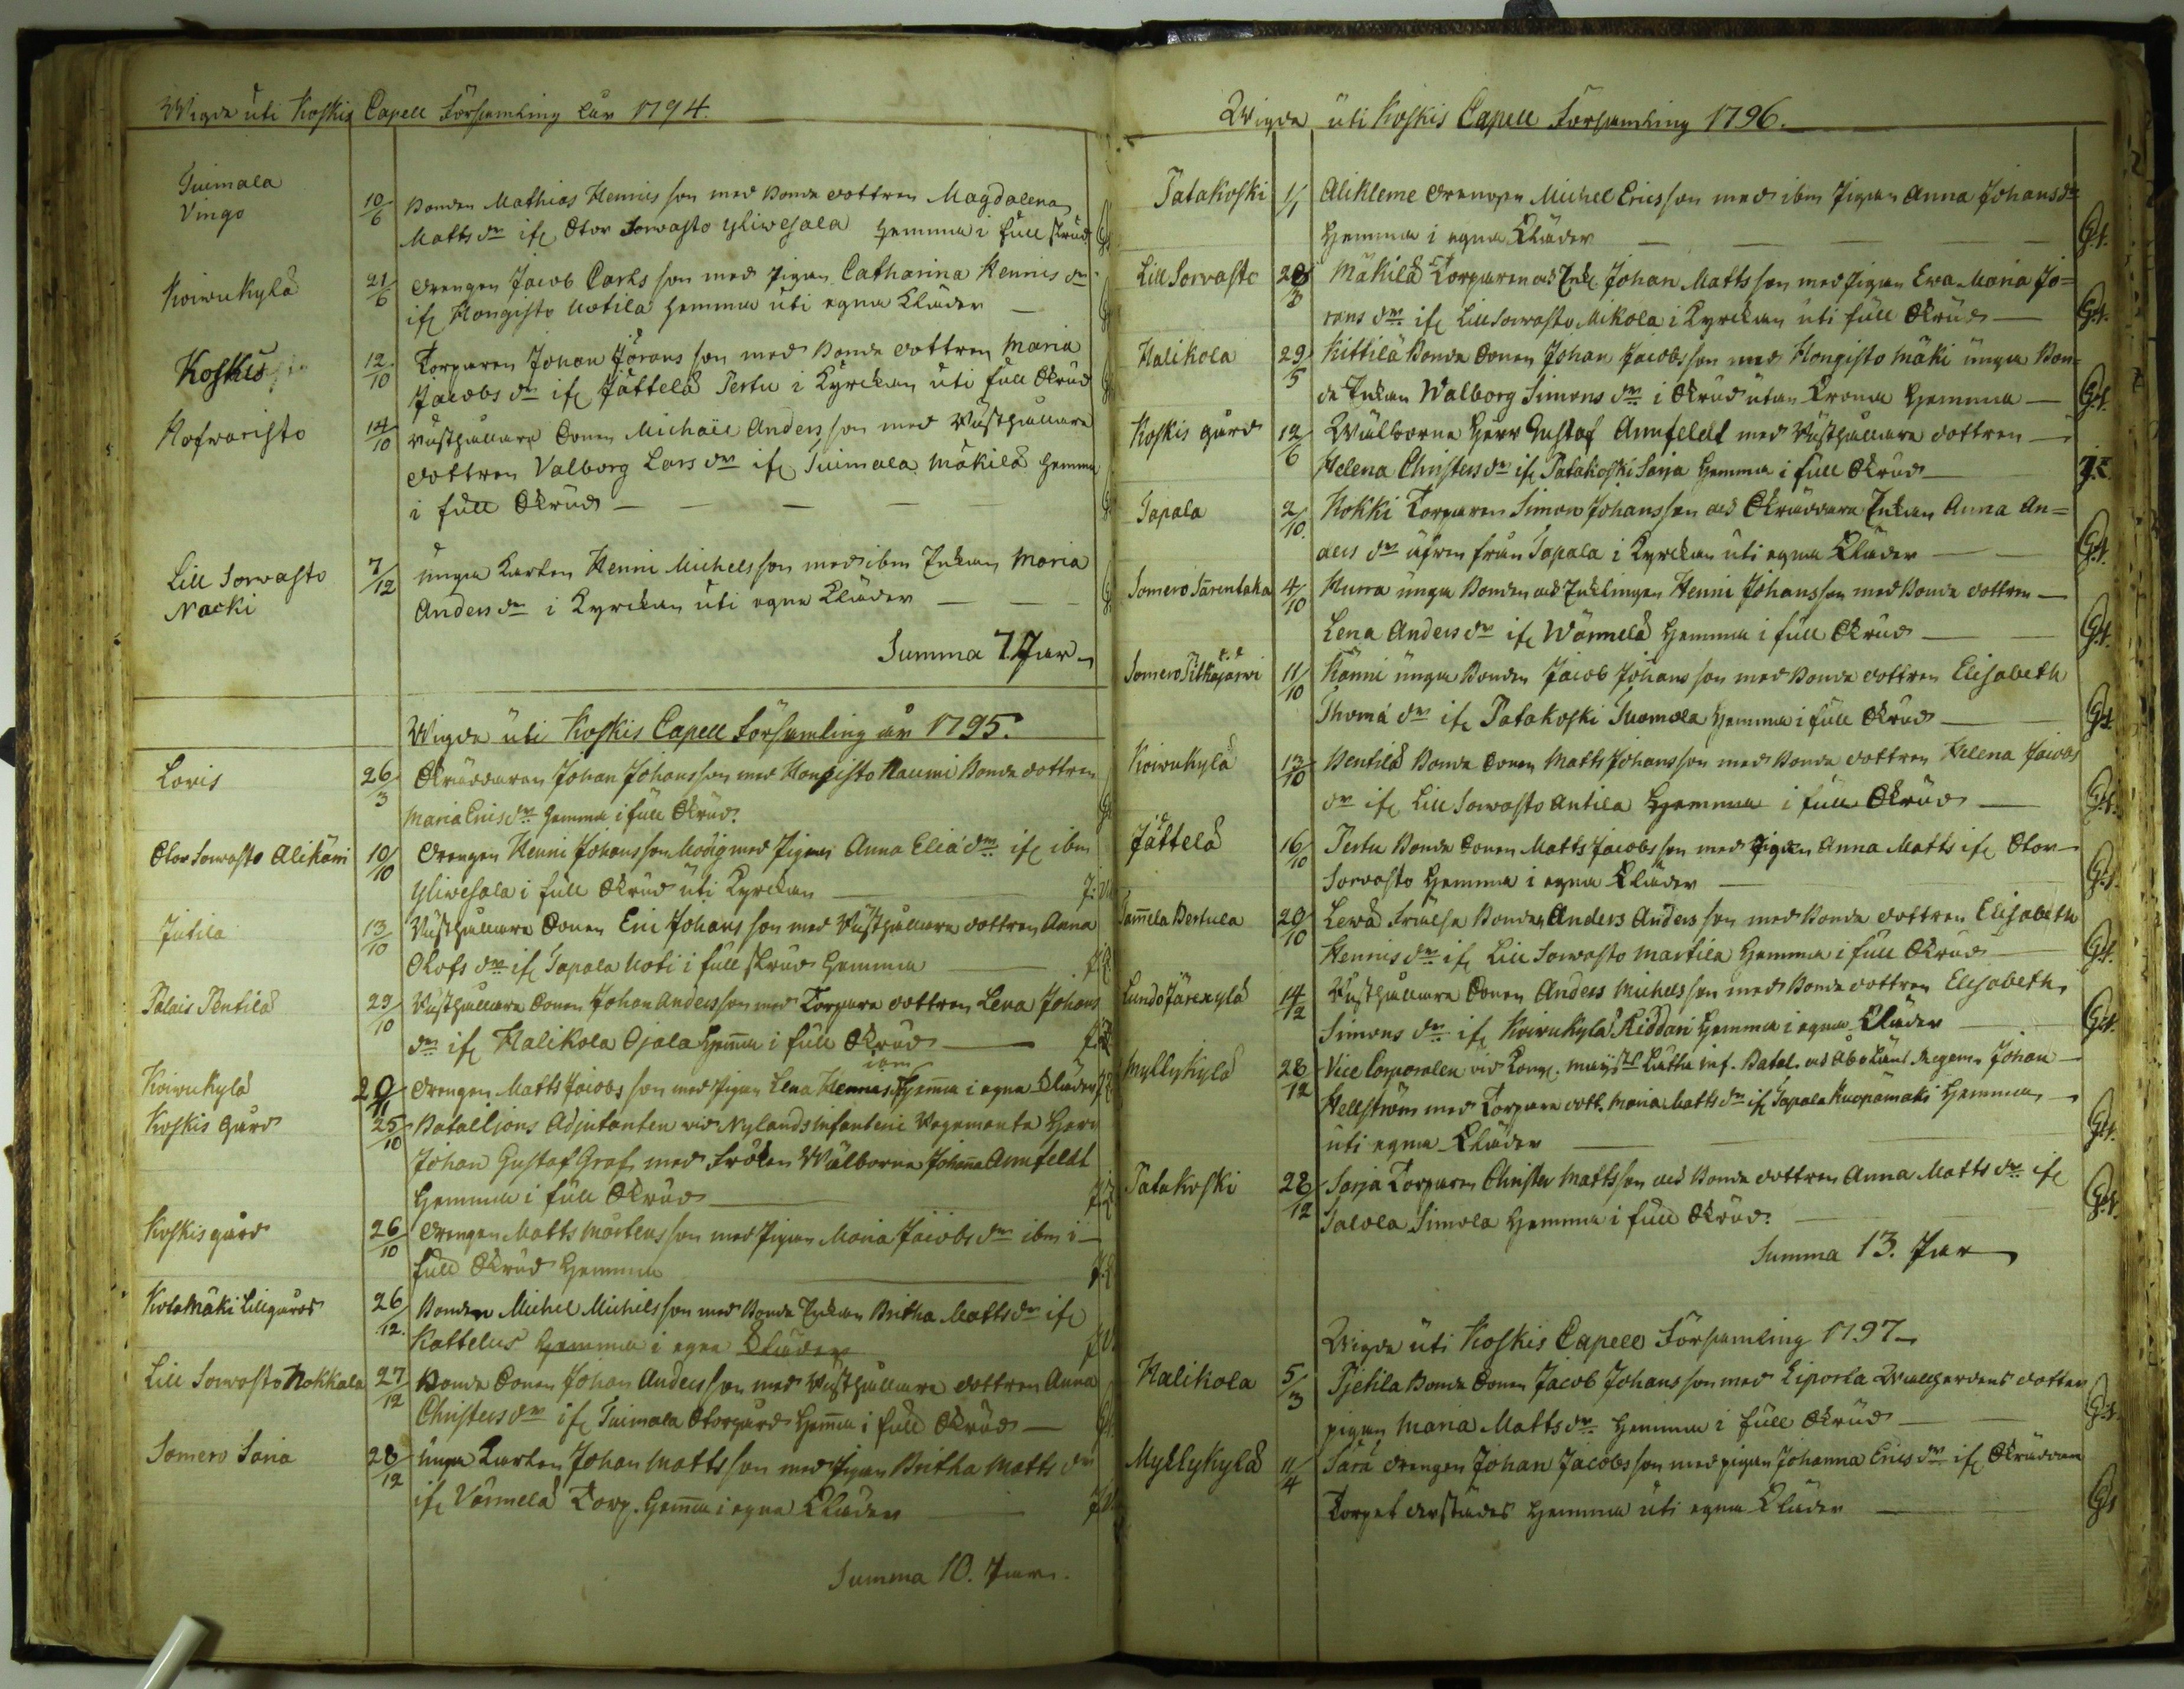 Wigde uti Koskis Capell Församling åhr 1794.
Tuimala
Vingo
10/6 Bonden Mathias Henrics son med Bonde dottren Magdalena
Matts dr ifr Stor Sorvasto Yliwesala hemma i full skrud
Koiwukylä 21/6 Drengen Jacob Carls son med Pigan Catharina Henrics dr
ifr Hongisto Uotila hemma uti egna Kläder
Koskis 12/10 Torparen Johan Jörans son med Bonde dottren Maria
Jacobs dr ifr Jättelä Pertu i Kyrckan uti full Skrud
Hofwaristo 14/10 Rusthållare Sonen Michaël Anders son med Rusthållare
dottren Valborg Lars dr ifr Tuimala Mäkilä hemma
i full Skrud
Lill Sorvasto
Nacki
7/12 unga Karlen Henric Michels son med ibm Enkan Maria
Anders dr i Kyrckan uti egna Kläder
Summa 7. Par
Wigde uti Koskis Capell Församling år 1795.
Lovis 26/3 Skräddaren Johan Johans son med Hongisto Naumi Bonde dottren
Maria Erics dr hemma i full Skrud.
Stor Sorvasto Alikärri 10/10 Drengen Henric Johans son Modig med Pigan Anna Eliæ dr ifr ibm
Yliwesala i full Skrud uti Kyrckan
Jutila 13/10 Rusthållare Sonen Eric Johans son med Rusthållare dottren Anna
Olofs dr ifr Tapala Uoti i full skrud hemma
Palais Pentilä 29/10 Rusthållare Sonen Johan Anders son med Torpare dottren Lena Johans
dr ifr Halikola Ojala hemma i full Skrud
Koiwukylä 20/11 Drengen Matts Jacobs son med Pigan Lena Hennes ibm hemma i egna Kläder
Koskis Gård 25/10 Bataillions Adjutanten vid Nylands infanterie Regemente Herr
Johan Gustaf Graf med Fröken Wälborne Johanna Armfeldt
hemma i full Skrud
Koskis gård 26/10 Drengen Matts Mårtens son med Pigan Maria Jacobs dr ibm i
full Skrud hemma
Kolamäki Lillgård 26/12. Bonden Michel Michels son med Bonde Enkan Britha Matts dr ifr
Kattelus hemma i egna Kläder
Lill Sorvasto Nokkala 27/12 Bonde Sonen Johan Anders son med Rusthållare dottren Anna
Christers dr ifr Tuimala Storgård hemma i full Skrud
Somero Saria 28/12 unga Karlen Johan Matts son med Pigan Britha Matts dr
ifr Värmelä Torp. hemma i egna Kläder
Summa 10. Par.
Wigde uti Koskis Capell Församling 1796.
Patakoski 1/1 Alikleme Drengen Michel Ericsson med ibm Pigan Anna Johans dr
hemma i egna Kläder G:s.
Lill Sorvasto 28/3 Mäkilä Torparen och Enkl. Johan Matts son med Pigan Ewa Maria Jö=
rans dr ifr Lill Sorvasto Mikola i Kyrckan uti full Skrud G:s.
Halikola 29/5 Kittilä Bonde Sonen Johan Jacobs son med Hongisto Mäki unga Bon=
de Enkan Walborg Simons dr i Skrud utan Krona hemma G:s.
Koskis gård 12/6 Wälborne Herr Gustaf Armfeldt med Rusthållare dottren
Helena Christers dr ifr Patakoski Sarja hemma i full Skrud
Tapala 2/10. Kokki Torparen Simon Johans son och Skräddare Enkan Anna An=
ders dr äfven från Tapala i Kyrckan uti egna Kläder G:s.
Somero Särentaka 4/10 Hurra unga Bonden och Enklingen Henric Johans son med Bonde dottren
Lena Anders dr ifr Wärmelä hemma i full Skrud G:s.
Somero Pitkäjärvi 11/10 Känni unga Bonden Jacob Johans son med Bonde dottren Elisabeth
Thomæ dr ifr Patakoski Tuomola hemma i full Skrud G:s.
Koiwukylä 13/10 Bentilä Bonde Sonen Matts Johans son med Bonde dottren Helena Jacobs
dr ifr Lill Sorvasto Antila hemma i full Skrud G:s.
Jättelä 16/10 Pertu Bonde Sonen Matts Jacobs son med Pigan Anna Matts ifr Stor
Sorvasto hemma i egna Kläder G:s.
Jamela Bertula 29/10 Lewä Frälse Bonden Anders Anders son med Bonde dottren Elisabeth
Henrics dr ifr Lill Sorvasto Martila hemma i full Skrud G:s.
Lundo Järekylä 14/12 Rusthållare Sonen Anders Michels son med Bonde dottren Elisabeth
Simons dr ifr Koiwukylä Riddari hemma i egna Kläder G:s.
Myllykylä 28/12 Vice Corporalen vid Kongl. Majsts Lätta inf. Batal. och Åbo Läns Regem. Johan
Hellström med Torpare dott. Maria Matts dr ifr Tapala Kuopamäki hemma
uti egna Kläder G:s.
Patakoski 28/12 Sarja Torparen Christer Matts son och Bonde dottren Anna Matts dr ifr
Talola Simola hemma i full Skrud. G:s.
Summa 13. Par
Wigde uti Koskis Capell Församling 1797
Halikola 5/3 Pjetila Bonde Sonen Jacob Johans son med Liporla dotter
pigan Maria Matts dr hemma i full Skrud G:s.
Myllykylä 11/4 Sara drengen Johan Jacobs son med pigan Johanna Erics dr ifr Skräddare
Torpet derstädes hemma uti egna Kläder G:s